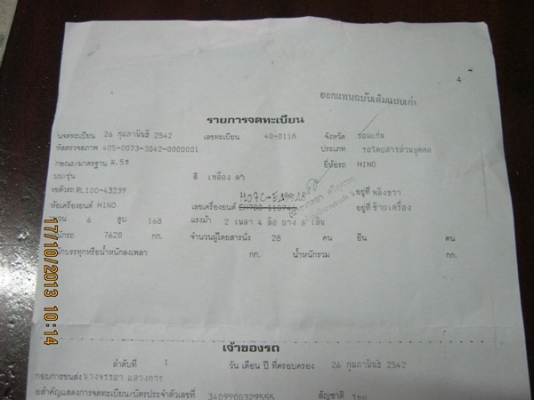 4
ออกแทนฉบับเดิมแบบเก่า
รายการจดทะเบียน
วันจดทะเบียน 26 กุมภาพันธ์ 2542 เลขทะเบียน 40-0118 จังหวัด ขอนแก่น
รหัสตรวจสภาพ 405-0073-3042-0000001 ประเภท รถโดยสารส่วนบุคคล
ลักษณะ/มาตรฐาน ยี่ห้อรถ HINO
แบบ/รุ่น สี เหลือง ดำ
เลขตัวรถ RL100-43239 อยู่ที่
ยี่ห้อเครื่องยนต์ HINO เลขเครื่องยนต์ อยู่ที่ ซ้ายเครื่อง
จำนวน 6 สูบ 168 แรงม้า 2 เพลา 4 ล้อ ยาง 6 เส้น
น้ำหนักรถ 7620 กก. จำนวนผู้โดยสารนั่ง 28 คน ยืน คน
น้ำหนักบรรทุกหรือน้ำหนักลงเพลา กก. น้ำหนักรวม กก.
เจ้าของรถ
ลำดับที่ 1 วัน เดือน ปี ที่ครอบครอง 26 กุมภาพันธ์ 2542
ผู้ประกอบการขนส่ง
หนังสือสำคัญแสดงการจดทะเบียน/บัตรประจำตัวเลขที่ 3409900329555 สัญชาติ ไทย
17/10/2013 10:14